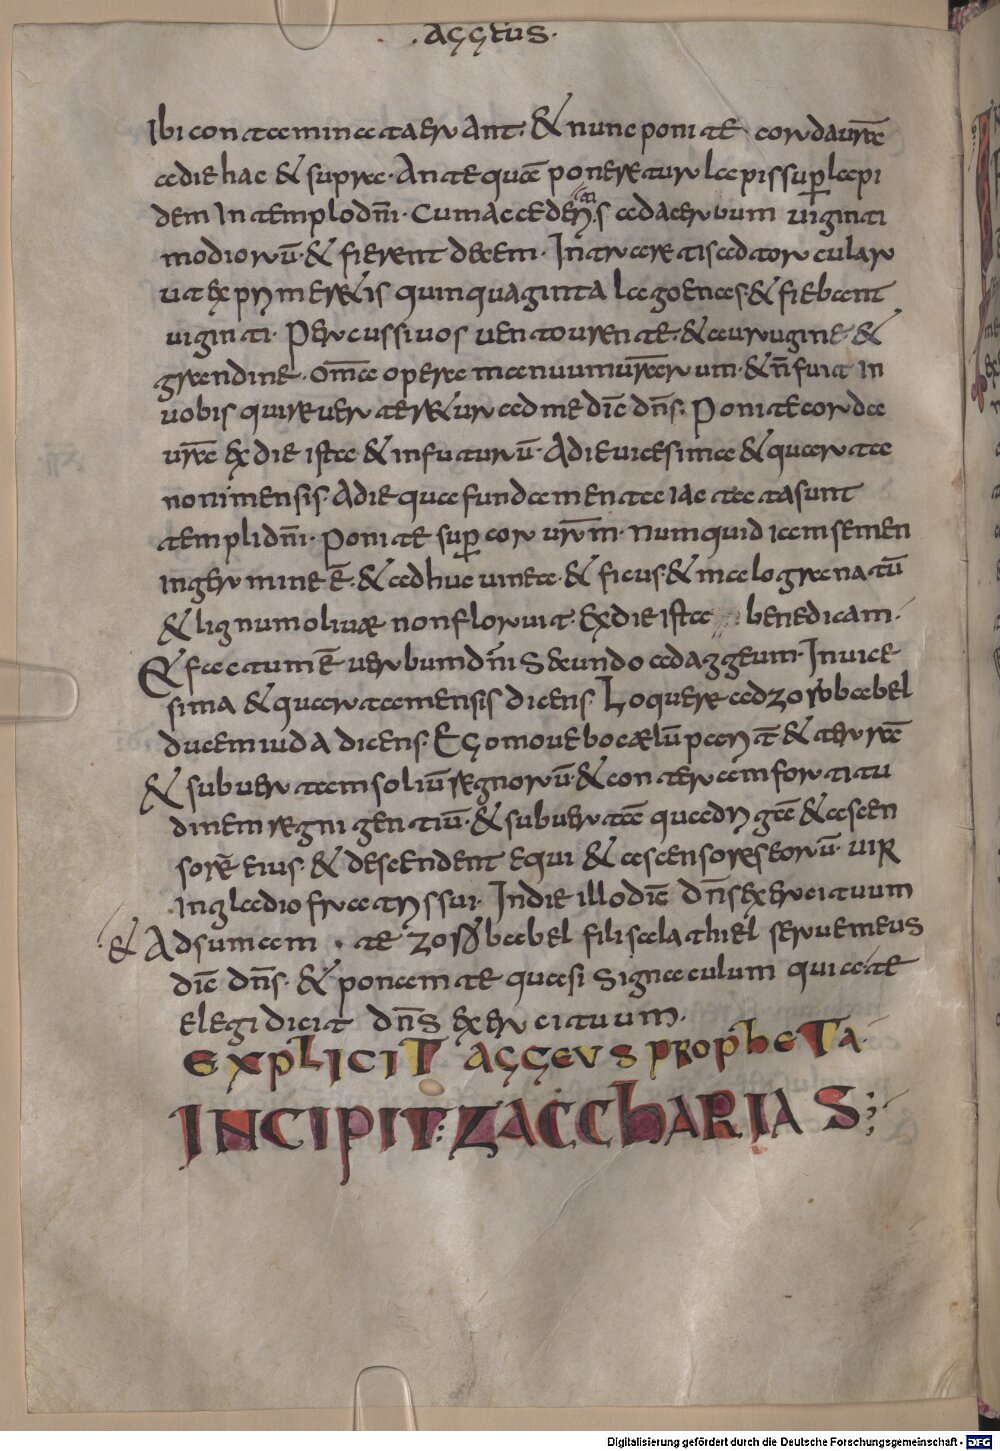 · AGGEUS ·
Ibi contaminata erant · & nunc ponite corda ur̅a̅
a die hac & supra · Antequa̅ poneretur lapis sup̲ lapi
dem In templo dn̅i · Cum accederitis ad acerbum uiginti
modioru̅ · & fierent decem · Intraretis ad torcular
ut exprimeretis quinquaginta lagoenas · & fiebant
uiginti · Percussi uos uento urente · & aurugine · &
grandine · om̅a opera manuum ur̅ar̅um · & n̅ fuit In
uobis qui reuerteretur ad me dic̅ dn̅s · Ponite corda
ur̅a̅ Ex die ista & In futuru̅ · A die uicesima & quarta
noni mensis · A die qua fundamenta iacta sunt
templi dn̅i · Ponite sup̲ cor ur̅m̅ · Numquid iam semen
In germine e̅ · & adhuc uinea · & ficus · & malogranatu̅
& lignum oliuæ non floruit · Ex die ista benedicam ·
Et factum e̅ uerbum dn̅i secundo ad aggeum · In uice
sima & quarta mensis dicens · Loquere ad zorobabel
ducem iuda dicens · Ego mouebo cælu̅ parit̅ & terra̅
& subuertam soliu̅ regnoru̅ · & conteram fortitu
dinem regni gentiu̅ · & subuerta̅ quadriga̅ & ascen
sore̅ eius · & descendent equi & ascensores eoru̅ · uir
In gladio fratris sui · In die illo dic̅ dn̅s exercituum
& Adsumam · te zorobabel fili salathiel serue meus
dic̅ dn̅s · & ponam te quasi signaculum quia te
elegi dicit dn̅s exercituum ·
EXPLICIT AGGEUS PROPHETA ·
INCIPIT : ZACCHARIAS ;
Digitalisierung gefördert durch die Deutsche Forschungsgemeinschaft - DFG